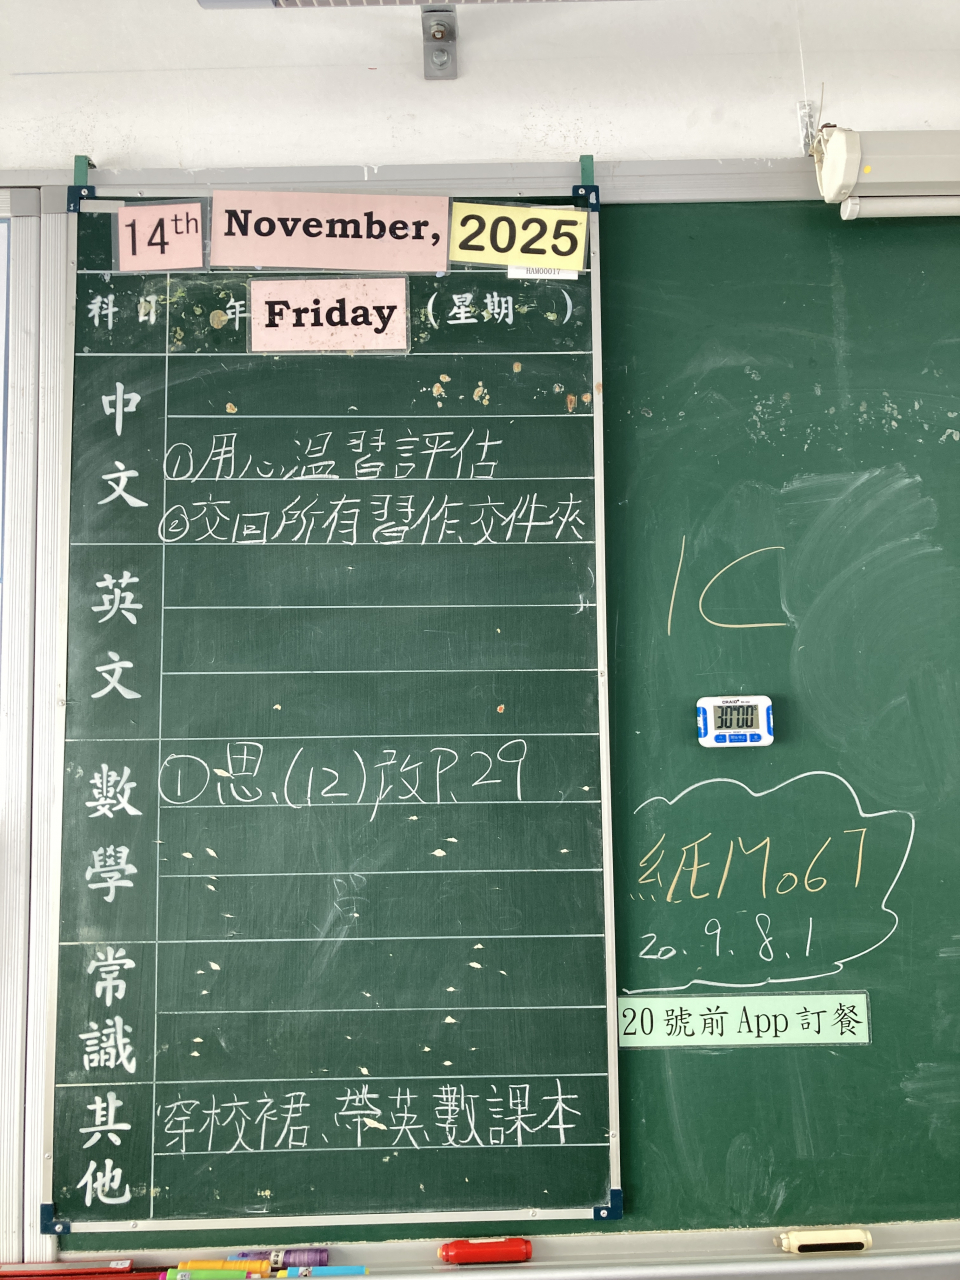 14th November, 2025
HAM00017
科目 年 Friday (星期 )
中文
①用心溫習評估
②交回所有習作,交件夾
英文
數學
①思(12),改P.29
常識
其他
穿校裙、帶英,數課本
1C
30'00"
紙M067
20.9.8.1
20號前App訂餐